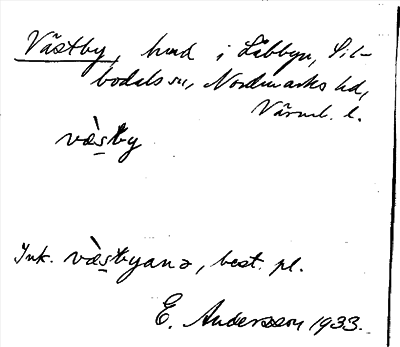 Västby, hmd i Låbbyn, Sil-
bodals sn, Nordmarks hd,
Värml. l.
væ̀s̠by
Ink. væ̀s̠byana, best. pl.
E. Andersson 1933.